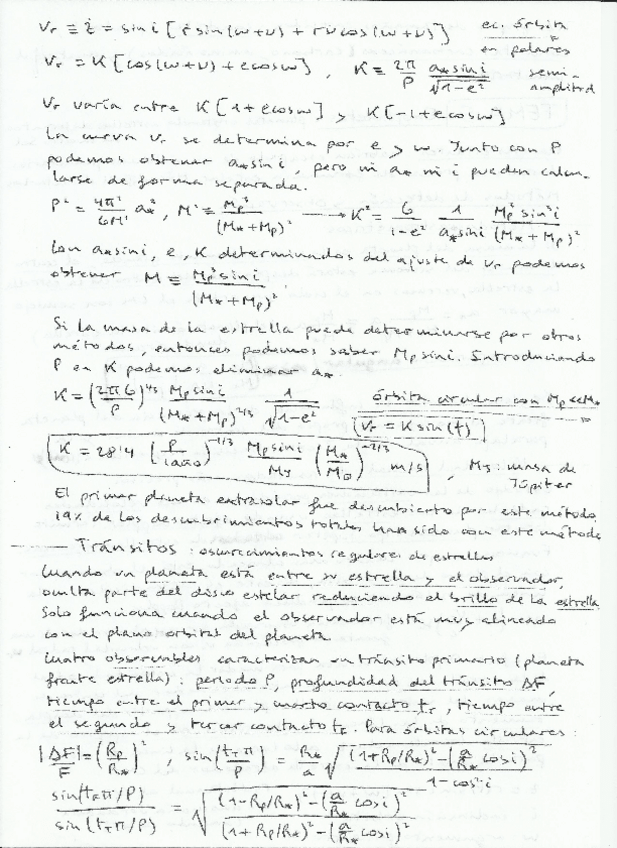 Vr ≡ ż = sin i [ṙ sin(w+ν) + rν̇ cos(w+ν)]    ec. órbita en polares
Vr = K[cos(w+ν) + e cos w], K = 2π/P a* sin i/√(1-e²)    semi-amplitud
Vr varía entre K[1+e cos w] y K[-1+e cos w]
La curva Vr se determina por e y w. Junto con P
podemos obtener a* sin i, pero ni a* ni i pueden calcu-
larse de forma separada.
P² = 4π²/GM' a*³, M' = Mp³/(M*+Mp)² → K² = G/(1-e²) 1/(a* sin i) Mp³ sin²i/(M*+Mp)²
Con a* sin i, e, K determinados del ajuste de Vr podemos
obtener M = Mp³ sin i/(M*+Mp)²
Si la masa de la estrella puede determinarse por otros
métodos, entonces podemos saber Mp sin i. Introduciendo
P en K podemos eliminar a*.
K = (2πG/P)^1/3 Mp sin i/(M*+Mp)^2/3 1/√(1-e²)    órbita circular con Mp<<M*
Vr = K sin(f)
K = 28'4 (P/1año)^-1/3 Mp sin i/MJ (M*/M⊙)^-2/3 m/s, MJ: masa de Júpiter
El primer planeta extrasolar fue descubierto por este método
19% de los descubrimientos totales han sido con este método
— Tránsitos: oscurecimientos regulares de estrellas
Cuando un planeta está entre su estrella y el observador,
oculta parte del disco estelar reduciendo el brillo de la estrella
Solo funciona cuando el observador está muy alineado
con el plano orbital del planeta
Cuatro observables caracterizan un tránsito primario (planeta
frente estrella): periodo P, profundidad del tránsito ΔF,
tiempo entre el primer y cuarto contacto tT, tiempo entre
el segundo y tercer contacto tF. Para órbitas circulares:
|ΔF/F| = (Rp/R*)², sin(tT π/P) = R*/a √(((1+Rp/R*)² - (a/R* cos i)²)/(1-cos²i))
sin(tF π/P)/sin(tT π/P) = √(((1-Rp/R*)² - (a/R* cos i)²)/((1+Rp/R*)² - (a/R* cos i)²))